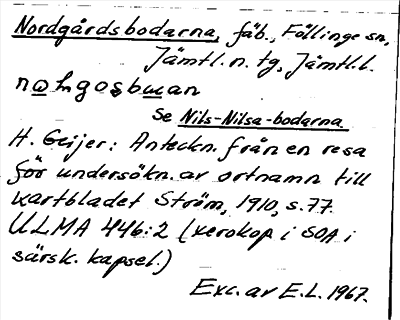 Nordgårdsbodarna, fäb., Föllinge sn,
Jämtl. n. tg, Jämtl.l.
nǫlngos̨bu̲an
Se Nils-Nilsa-bodarna.
H. Geijer: Anteckn. från en resa
för undersökn. av ortnamn till
kartbladet Ström, 1910, s. 77.
ULMA 446:2 (xerokop i SOA i
särsk. kapsel.)
Exc. av E.L. 1967.